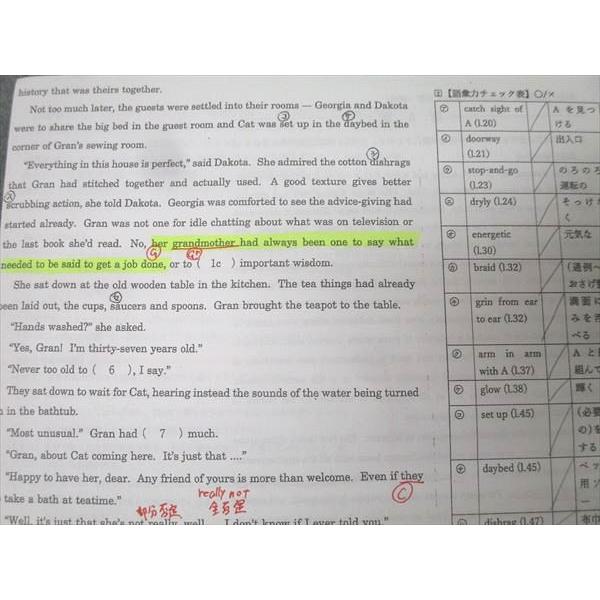 history that was theirs together.
Not too much later, the guests were settled into their rooms — Georgia and Dakota
were to share the big bed in the guest room and Cat was set up in the daybed in the
corner of Gran's sewing room.
"Everything in this house is perfect," said Dakota. She admired the cotton dishrags
that Gran had stitched together and actually used. A good texture gives better
scrubbing action, she told Dakota. Georgia was comforted to see the advice-giving had
started already. Gran was not one for idle chatting about what was on television or
the last book she'd read. No, her grandmother had always been one to say what
needed to be said to get a job done, or to ( 1c ) important wisdom.
She sat down at the old wooden table in the kitchen. The tea things had already
been laid out, the cups, saucers and spoons. Gran brought the teapot to the table.
"Hands washed?" she asked.
"Yes, Gran! I'm thirty-seven years old."
"Never too old to ( 6 ), I say."
They sat down to wait for Cat, hearing instead the sounds of the water being turned
in the bathtub.
"Most unusual." Gran had ( 7 ) much.
"Gran, about Cat coming here. It's just that ...."
"Happy to have her, dear. Any friend of yours is more than welcome. Even if they
take a bath at teatime."
C
really not
部分否定 全否定
"Well, it's just that she's not really well. I don't know if I ever told you."
【語彙力チェック表】○/×
catch sight of A (l.20) A を見つける
doorway (l.21) 出入口
stop-and-go (l.23) のろのろ運転の
dryly (l.24) そっけ く
energetic (l.30) 元気な
braid (l.32) (通例~ おさげ
grin from ear to ear (l.32) 満面に みを浮 べる
arm in arm with A (l.37) A と 組んで
glow (l.38) 輝く
set up (l.45) (必要 の)を する
daybed (l.45) ベッ 用ソ ー
dishrag (l.47) 布巾